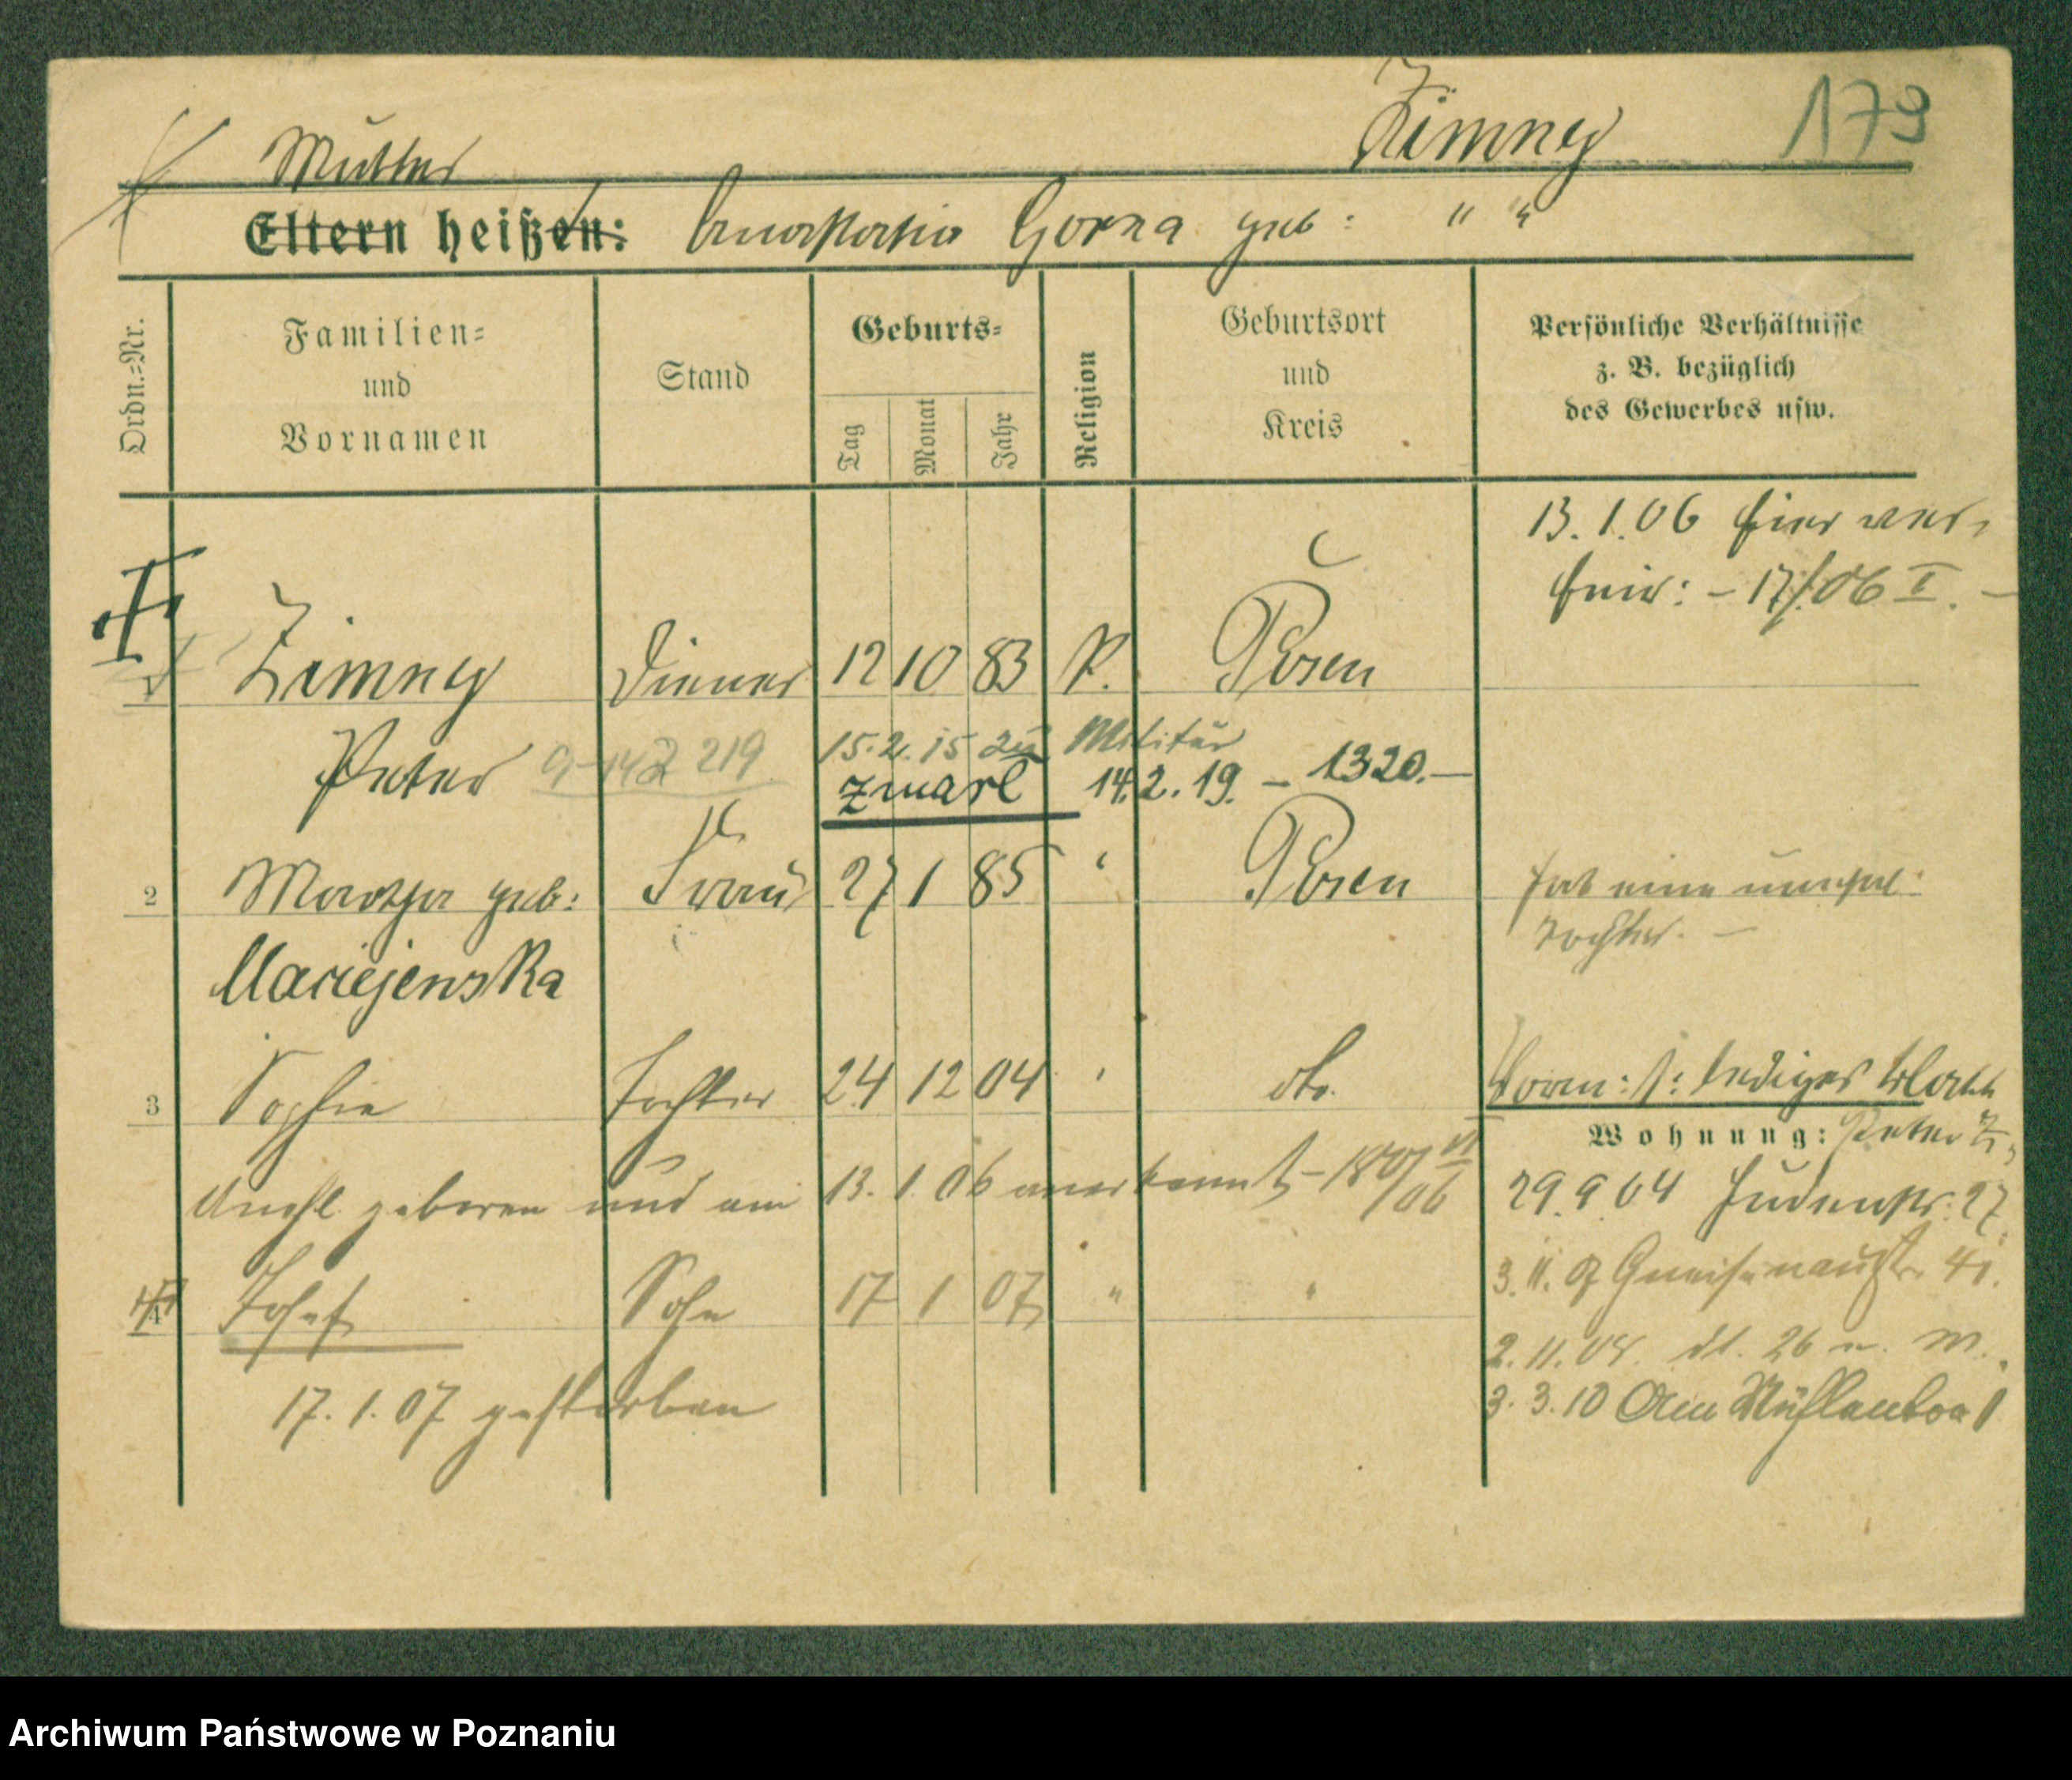 Zimny 179
Mutter
Eltern heißen: Anastasia Gorna geb: " "
Ordn.=Nr.
Familien=
und
Vornamen
Stand
Geburts=
Tag
Monat
Jahr
Religion
Geburtsort
und
Kreis
Persönliche Verhältnisse
z. B. bezüglich
des Gewerbes usw.
13. 1. 06 hier ver=
heir: – 17/06 I. –
1 Zimny Diener 12 10 83 K. Posen
Peter 219 15. 2. 15 zu Militär
zmarł 14. 2. 19. – 1320. –
2 geb: Frau 27 1 85 " Posen hat eine unehel:
Maciejewska Tochter. –
3 Sophie Tochter 24 12 04 " do. Vorn: s: lediges Blatt
Wohnung: Peter Z.
Unehl. geboren und am 13. 1. 06 anerkannt – 29. 9. 04 Judenstr. 27
3. 11. 07 Gneisenaustr. 41.
4 Josef Sohn 17 1 07 " "
2. 11. 08. dl. 26 n. W.
17. 1. 07 gestorben 3. 3. 10 Am Mühlentor 1
Archiwum Państwowe w Poznaniu